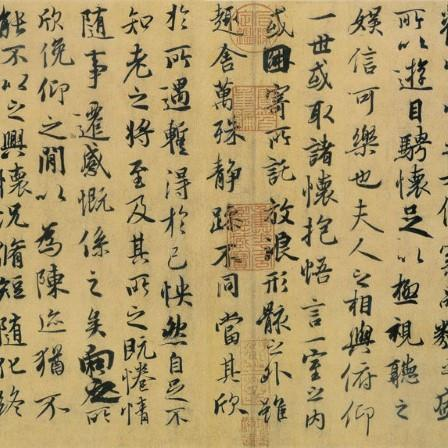 所以遊目騁懷足以極視聽之
娛信可樂也夫人之相與俯仰
一世或取諸懷抱悟言一室之內
或因寄所託放浪形骸之外雖
趣舍萬殊静躁不同當其欣
於所遇蹔得於己怏然自足不
知老之將至及其所之既惓情
隨事遷感慨係之矣向之所
欣俛仰之閒以為陳迹猶不
能不以之興懷況脩短隨化終